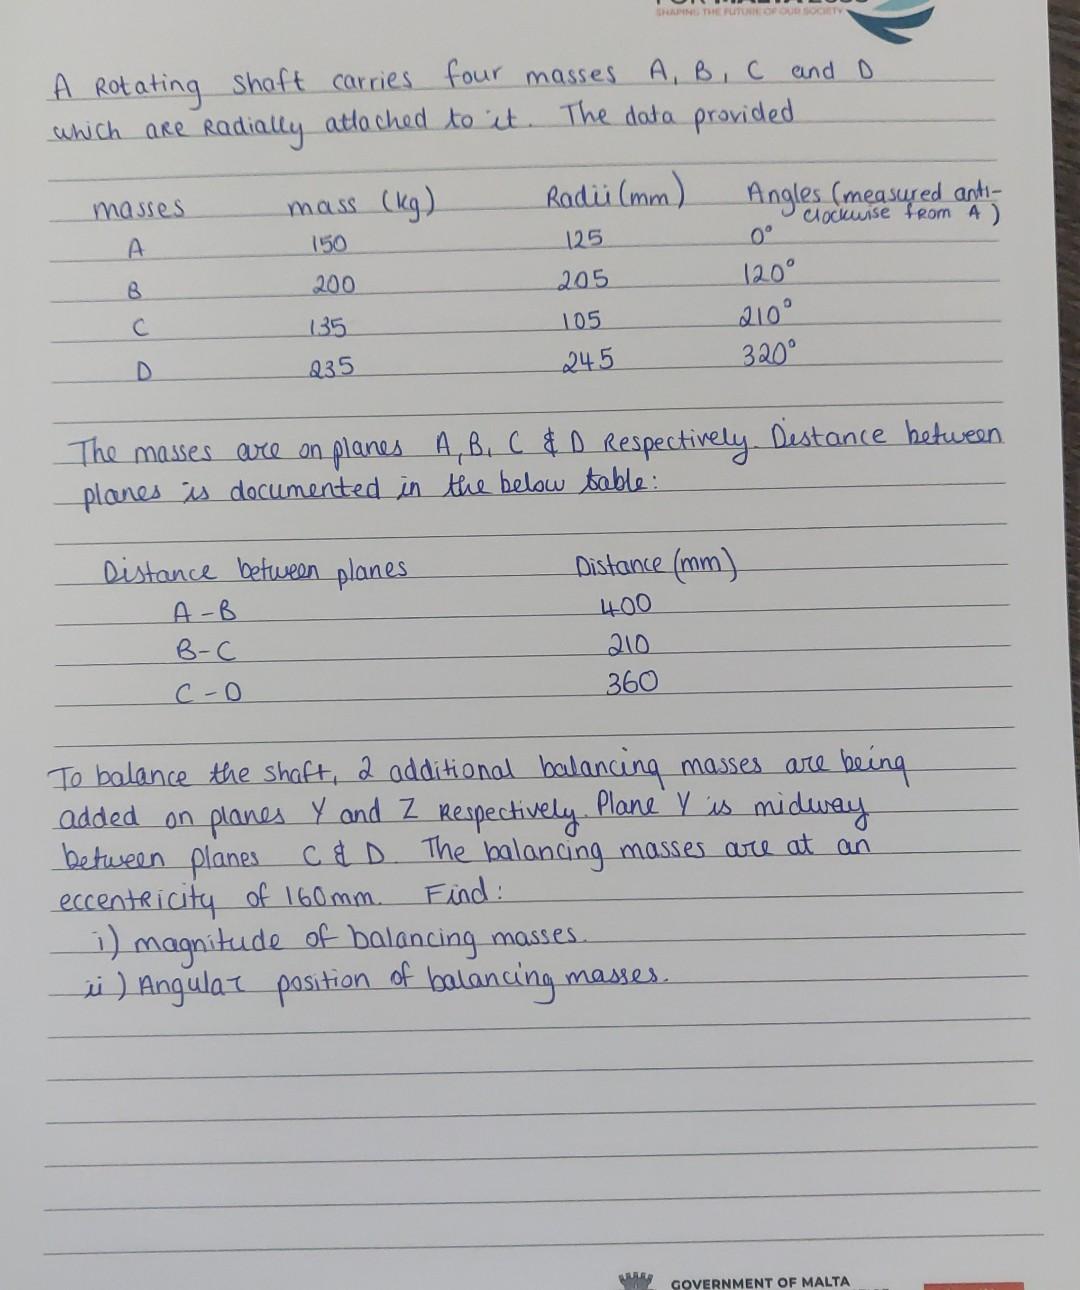 SHAPING THE FUTURE OF OUR SOCIETY
A Rotating shaft carries four masses A, B, C and D
which are Radially attached to it. The data provided
masses mass (kg) Radii (mm) Angles (measured anti-
clockwise from A)
A 150 125 0°
B 200 205 120°
C 135 105 210°
D 235 245 320°
The masses are on planes A, B, C & D Respectively. Distance between
planes is documented in the below table:
Distance between planes Distance (mm)
A-B 400
B-C 210
C-D 360
To balance the shaft, 2 additional balancing masses are being
added on planes Y and Z Respectively. Plane Y is midway
between planes C & D. The balancing masses are at an
eccentricity of 160mm. Find:
i) magnitude of balancing masses.
ii) Angular position of balancing masses.
GOVERNMENT OF MALTA